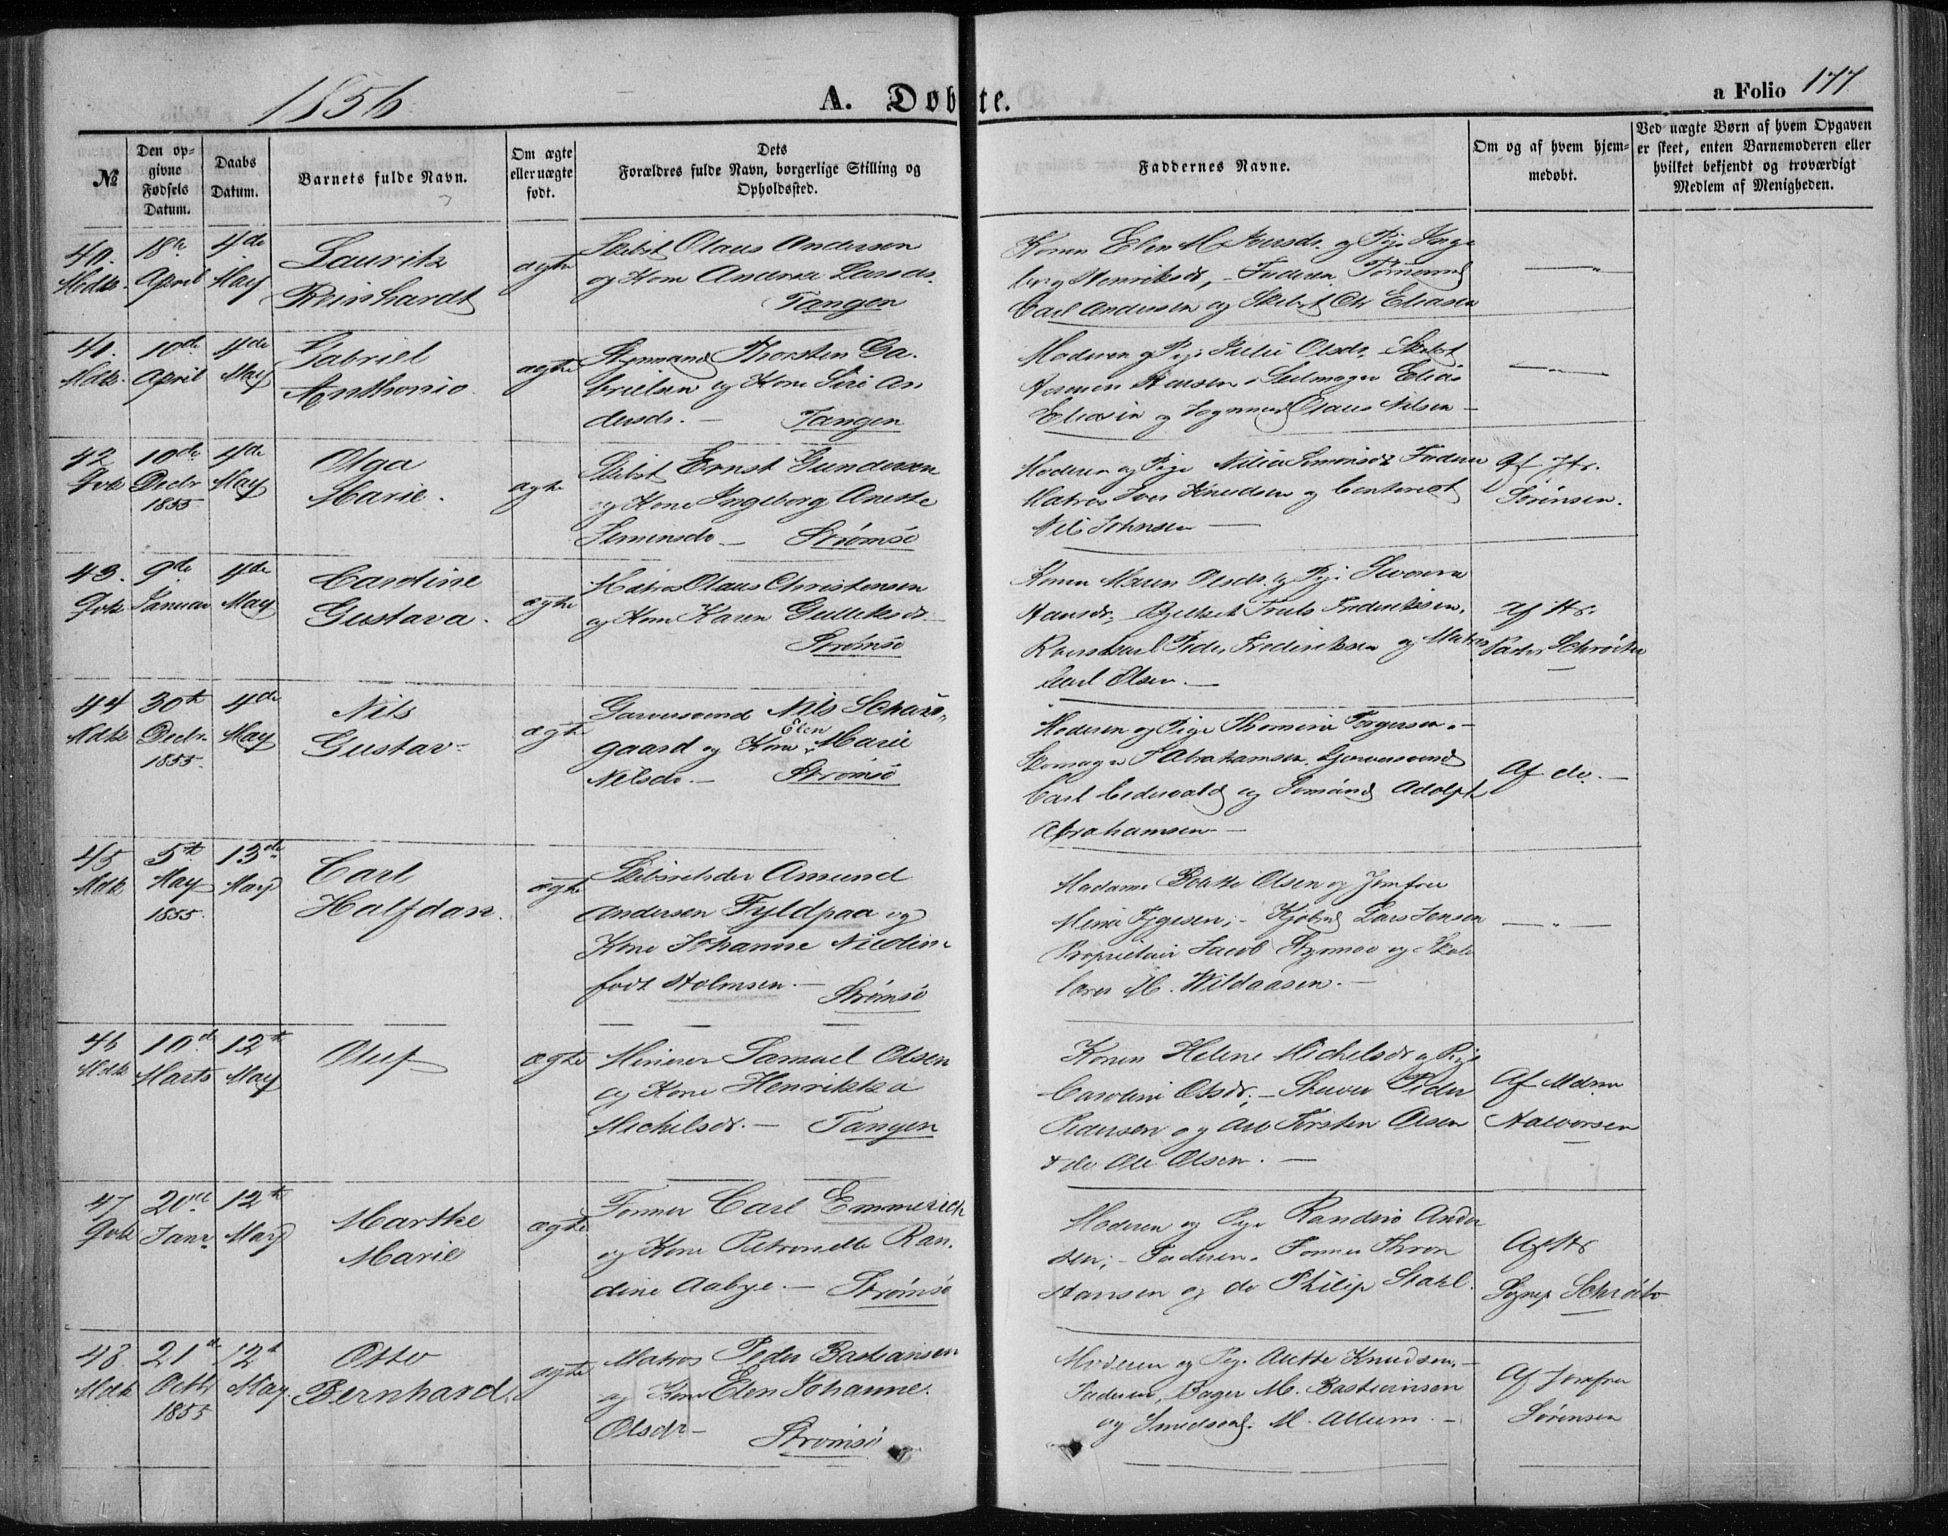 1856
A. Døbte.
a Folio 177
№
Den op-
givne
Fødsels
Datum.
Daabs
Datum.
Barnets fulde Navn.
Om ægte
eller uægte
født.
Dets
Forældres fulde Navn, borgerlige Stilling og
Opholdssted.
Faddernes Navne.
Om og af hvem hjem-
medøbt.
Ved uægte Børn af hvem Opgaven
er skeet, enten Barnemoderen eller
hvilket bekjendt og troværdigt
Medlem af Menigheden.
40. Mdk.
18de April
4de May
Lauritz
Reinhardt
ægte
Skibst Olaus Andersen
og Kone Andrea Larsdr.
Tangen
Konen Elen M. Iversdr. og Pige Inge
borg Henriksdr, - Faderen, Tømmermd
Carl Andersen og Skibst Ole Eliasen
41. Mdk.
10de April
4de May
Gabriel
Anthonio
ægte
Styrmand Thorsten Ga-
brielsen og Kone Siri An
dersdr. - Tangen
Moderen og Pige Julie Olsdr. Skibst
Hansen Seilmager Elias
Eliasen og Olaus Nilsen -
42 Qvk
10de Decbr 1855
4de May
Olga
Marie.
ægte
Skibst Ernst Gundersen
og Kone Ingeborg Anette
Simensdr - Strømsø
Moderen og Pige Nilia Simonsdr Faderen
Matros Iver Knudsen og
Nils Johnsen -
Af Jfr.
Sørensen.
43. Qvk
9de Januar
4de May
Caroline
Gustava.
ægte
Matros Olaus Christensen
og Kone Karen Gulliksdr.
Strømsø
Konen Maren Olsdr. og Pige
Hansdr, Truls Frederiksen,
Peder Frederiksen og Matros
Carl Olsen. -
Af Hr.
Schrøter
44 Mdk
30te Decbr. 1855.
4de May
Nils
Gustav
ægte
Garversvend Nils Schau-
gaard og Kone Elen Marie
Nilsdr. - Strømsø
Moderen og Pige Thomine Torgersen -
Skomager Abrahamsen, Garversvend
Carl Cedervald og Adolph
Abrahamsen -
Af do. -
45 Mdk
5te May 1855.
13de May
Carl
Halfdan.
ægte
Skibsreder Amund
Andersen Fyldpaa og
Kone Johanne Nicoline
født Holmsen. -
Strømsø
Madame Olsen og Jomfru
Lars Jensen
Proprietair Jacob og
M. Wildaasen. -
46 Mdk
10de Marts
12te May
Oluf
ægte
Minerer Samuel Olsen
og Kone Henrikka
Michelsdr. - Tangen
Konen Helene Michelsdr og Pige
Caroline Olsdr, - Peder
Pedersen og Arb Torsten Olsen
& do Ole Olsen. -
Af Mdm
Halvorsen
47 Qvk
20de Janr
12te May
Marthe
Marie
ægte
Former Carl Emmerich
og Kone Petronelle Ran-
dine Aabye. - Strømsø
Moderen og Pige Randine Ander
sen, - Faderen. Former Thron
Hansen og do Philip Stahl.
Af Hr
Schrøter
48 Mdk
21de Octbr 1855
12te May
Otto
Bernhard.
ægte
Matros Peder Bastiansen
og Kone Elen Johanne.
Olsdr - Strømsø
Moderen og Pige Anthe Knudsen, -
Faderen, Bager M. Bastiansen
og M. Allum. -
Af Jomfru
Sørensen